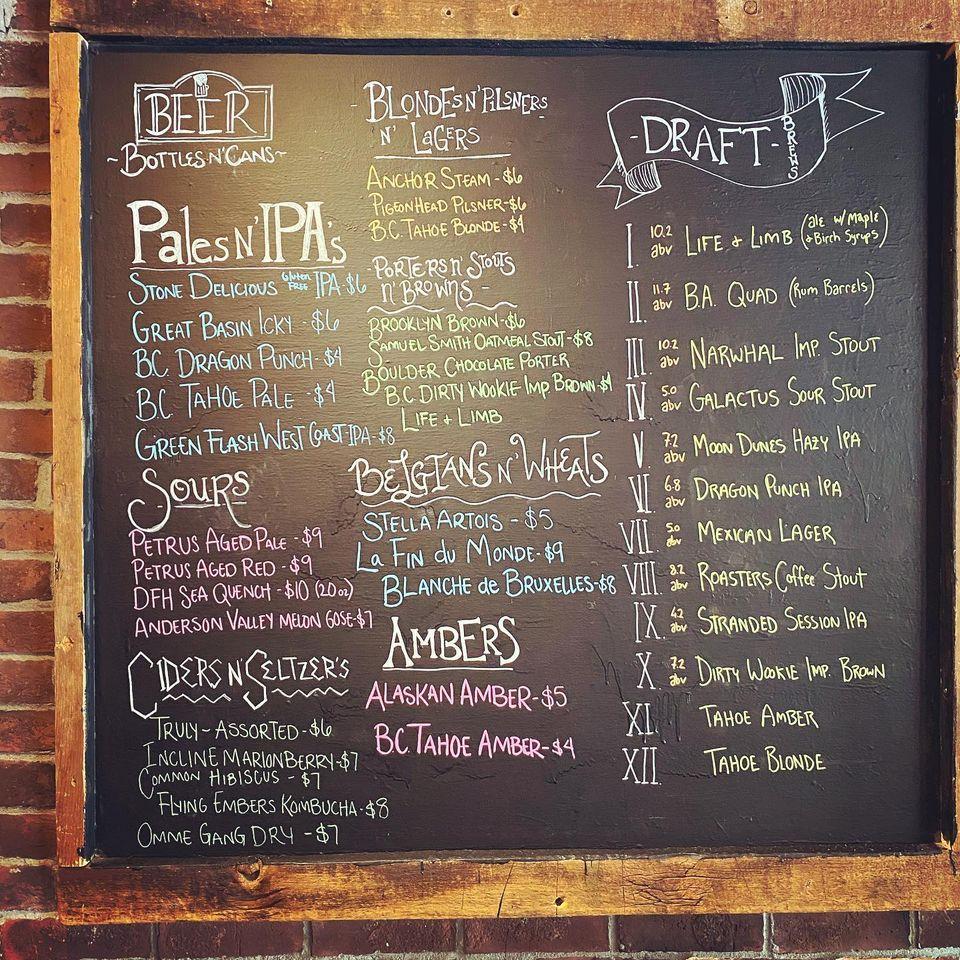 BEER
~BOTTLES N' CANS~
Pales N' IPA's
STONE DELICIOUS Gluten FREE IPA-$6
GREAT BASIN ICKY-$6
BC. DRAGON PUNCH-$4
B.C. TAHOE PALE-$4
GREEN FLASH WEST COAST IPA-$8
SOURS
PETRUS AGED PALE-$9
PETRUS AGED RED-$9
DFH SEA QUENCH-$10 (20oz)
ANDERSON VALLEY MELON GOSE-$7
CIDERS N' SELTZER'S
TRULY~ASSORTED-$6
INCLINE MARIONBERRY-$7
COMMON HIBISCUS-$7
FLYING EMBERS KOMBUCHA-$8
OMME GANG DRY-$7
-BLONDES N' PILSNERS
N' LAGERS
ANCHOR STEAM-$6
PIGEON HEAD PILSNER-$6
B.C. TAHOE BLONDE-$4
PORTERS N' STOUTS
N' BROWNS-
BROOKLYN BROWN-$6
SAMUEL SMITH OATMEAL STOUT-$8
BOULDER CHOCOLATE PORTER
B.C. DIRTY WOOKIE IMP. BROWN-$4
LIFE + LIMB
BELGIANS N' WHEATS
STELLA ARTOIS-$5
La FIN du MONDE-$9
BLANCHE de BRUXELLES-$8
AMBERS
ALASKAN AMBER-$5
BC. TAHOE AMBER-$4
-DRAFT-
BREWS
I. 10.2 abv LIFE + LIMB (ale w/ Maple + Birch Syrups)
II. 11.7 abv B.A. QUAD (Rum Barrels)
III. 10.2 abv NARWHAL IMP. STOUT
IV. 5.0 abv GALACTUS SOUR STOUT
V 7.2 abv MOON DUNES HAZY IPA
VI 6.8 abv DRAGON PUNCH IPA
VII. 5.0 abv MEXICAN LAGER
VIII. 8.2 abv ROASTERS Coffee STOUT
IX. 4.2 abv STRANDED SESSION IPA
X. 7.2 abv DIRTY WOOKIE IMP. BROWN
XI. TAHOE AMBER
XII. TAHOE BLONDE